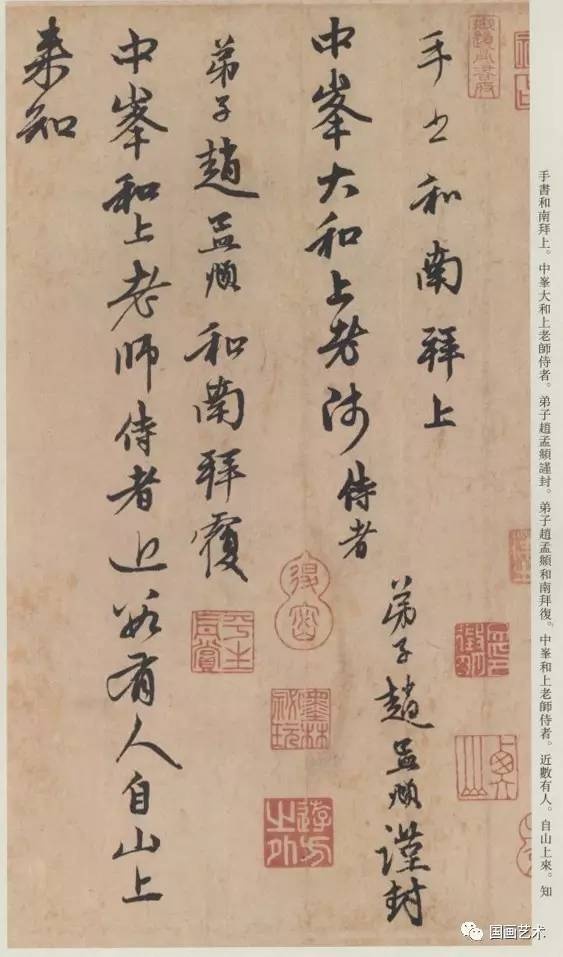 手书和南拜上
中峯大和上老师侍者
弟子趙孟頫謹封
弟子趙孟頫和南拜覆
中峯和上老師侍者近數有人自山上
来知
平生真賞
墨林祕玩
手書和南拜上。中峯大和上老師侍者。弟子趙孟頫謹封。弟子趙孟頫和南拜復。中峯和上老師侍者。近數有人。自山上來。知
国画艺术